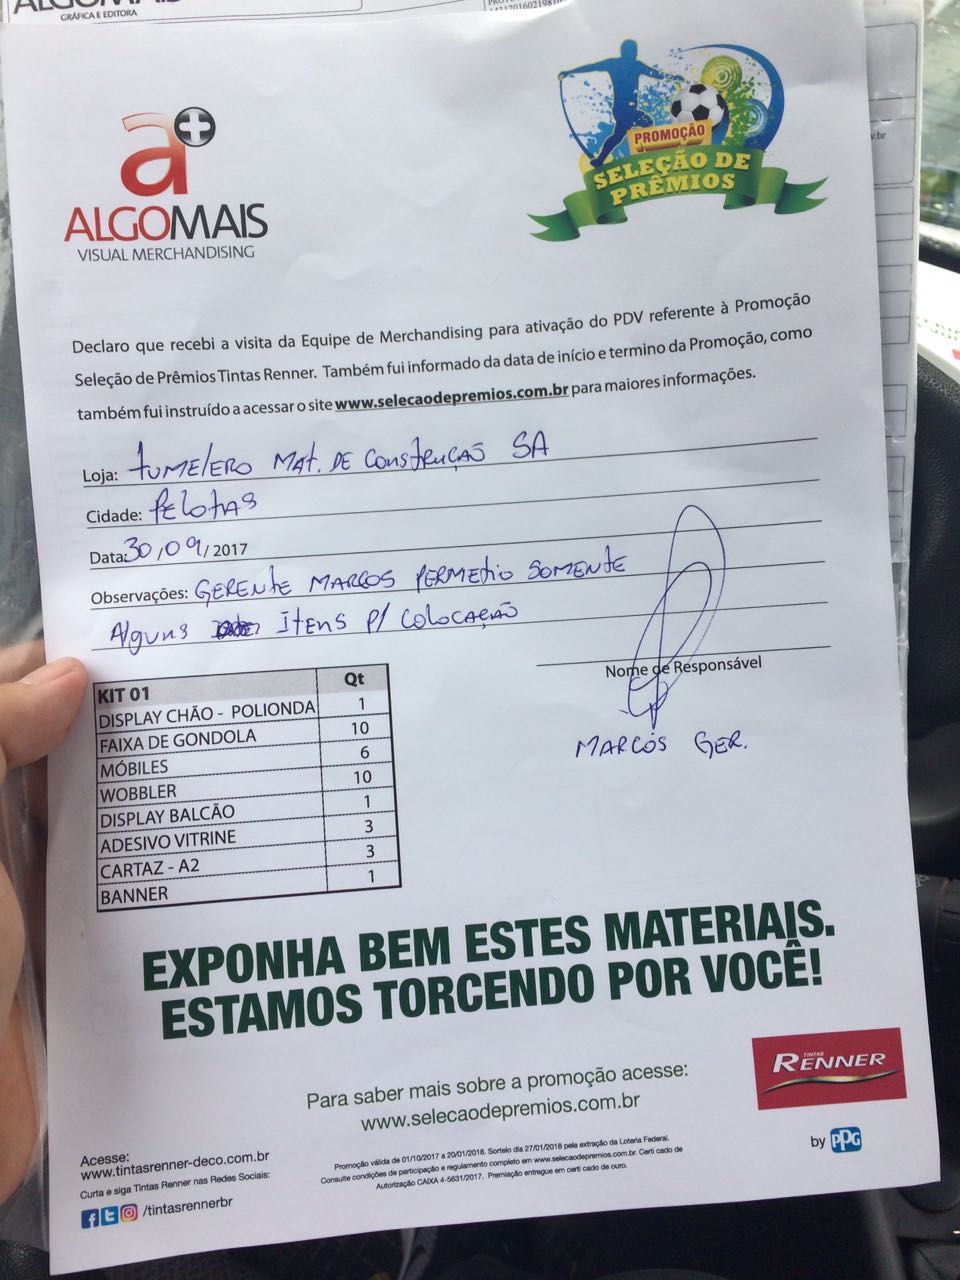 ALGOMAIS
GRÁFICA E EDITORA
a+
ALGOMAIS
VISUAL MERCHANDISING
PROMOÇÃO
SELEÇÃO DE
PRÊMIOS
Declaro que recebi a visita da Equipe de Merchandising para ativação do PDV referente à Promoção
Seleção de Prêmios Tintas Renner. Também fui informado da data de início e termino da Promoção, como
também fui instruído a acessar o site www.selecaodepremios.com.br para maiores informações.
Loja: TUMELERO MAT. DE CONSTRUÇÃO SA
Cidade: PELOTAS
Data: 30/09/2017
Observações: GERENTE MARCOS PERMETIO SOMENTE
Alguns ITENS P/ COLOCAÇÃO
Nome de Responsável
MARCOS GER.
KIT 01 Qt
DISPLAY CHÃO - POLIONDA 1
FAIXA DE GONDOLA 10
MÓBILES 6
WOBBLER 10
DISPLAY BALCÃO 1
ADESIVO VITRINE 3
CARTAZ - A2 3
BANNER 1
EXPONHA BEM ESTES MATERIAIS.
ESTAMOS TORCENDO POR VOCÊ!
TINTAS
RENNER
by PPG
Para saber mais sobre a promoção acesse:
www.selecaodepremios.com.br
Acesse:
www.tintasrenner-deco.com.br
Curta e siga Tintas Renner nas Redes Sociais:
/tintasrennerbr
Promoção válida de 01/10/2017 a 20/01/2018. Sorteio dia 27/01/2018 pela extração da Loteria Federal.
Consulte condições de participação e regulamento completo em www.selecaodepremios.com.br. Certi cado de
Autorização CAIXA 4-5631/2017. Premiação entregue em certi cado de ouro.